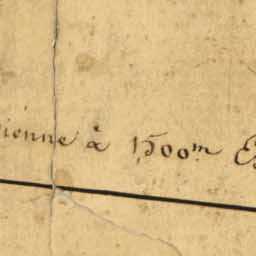 ienne à 1500m E